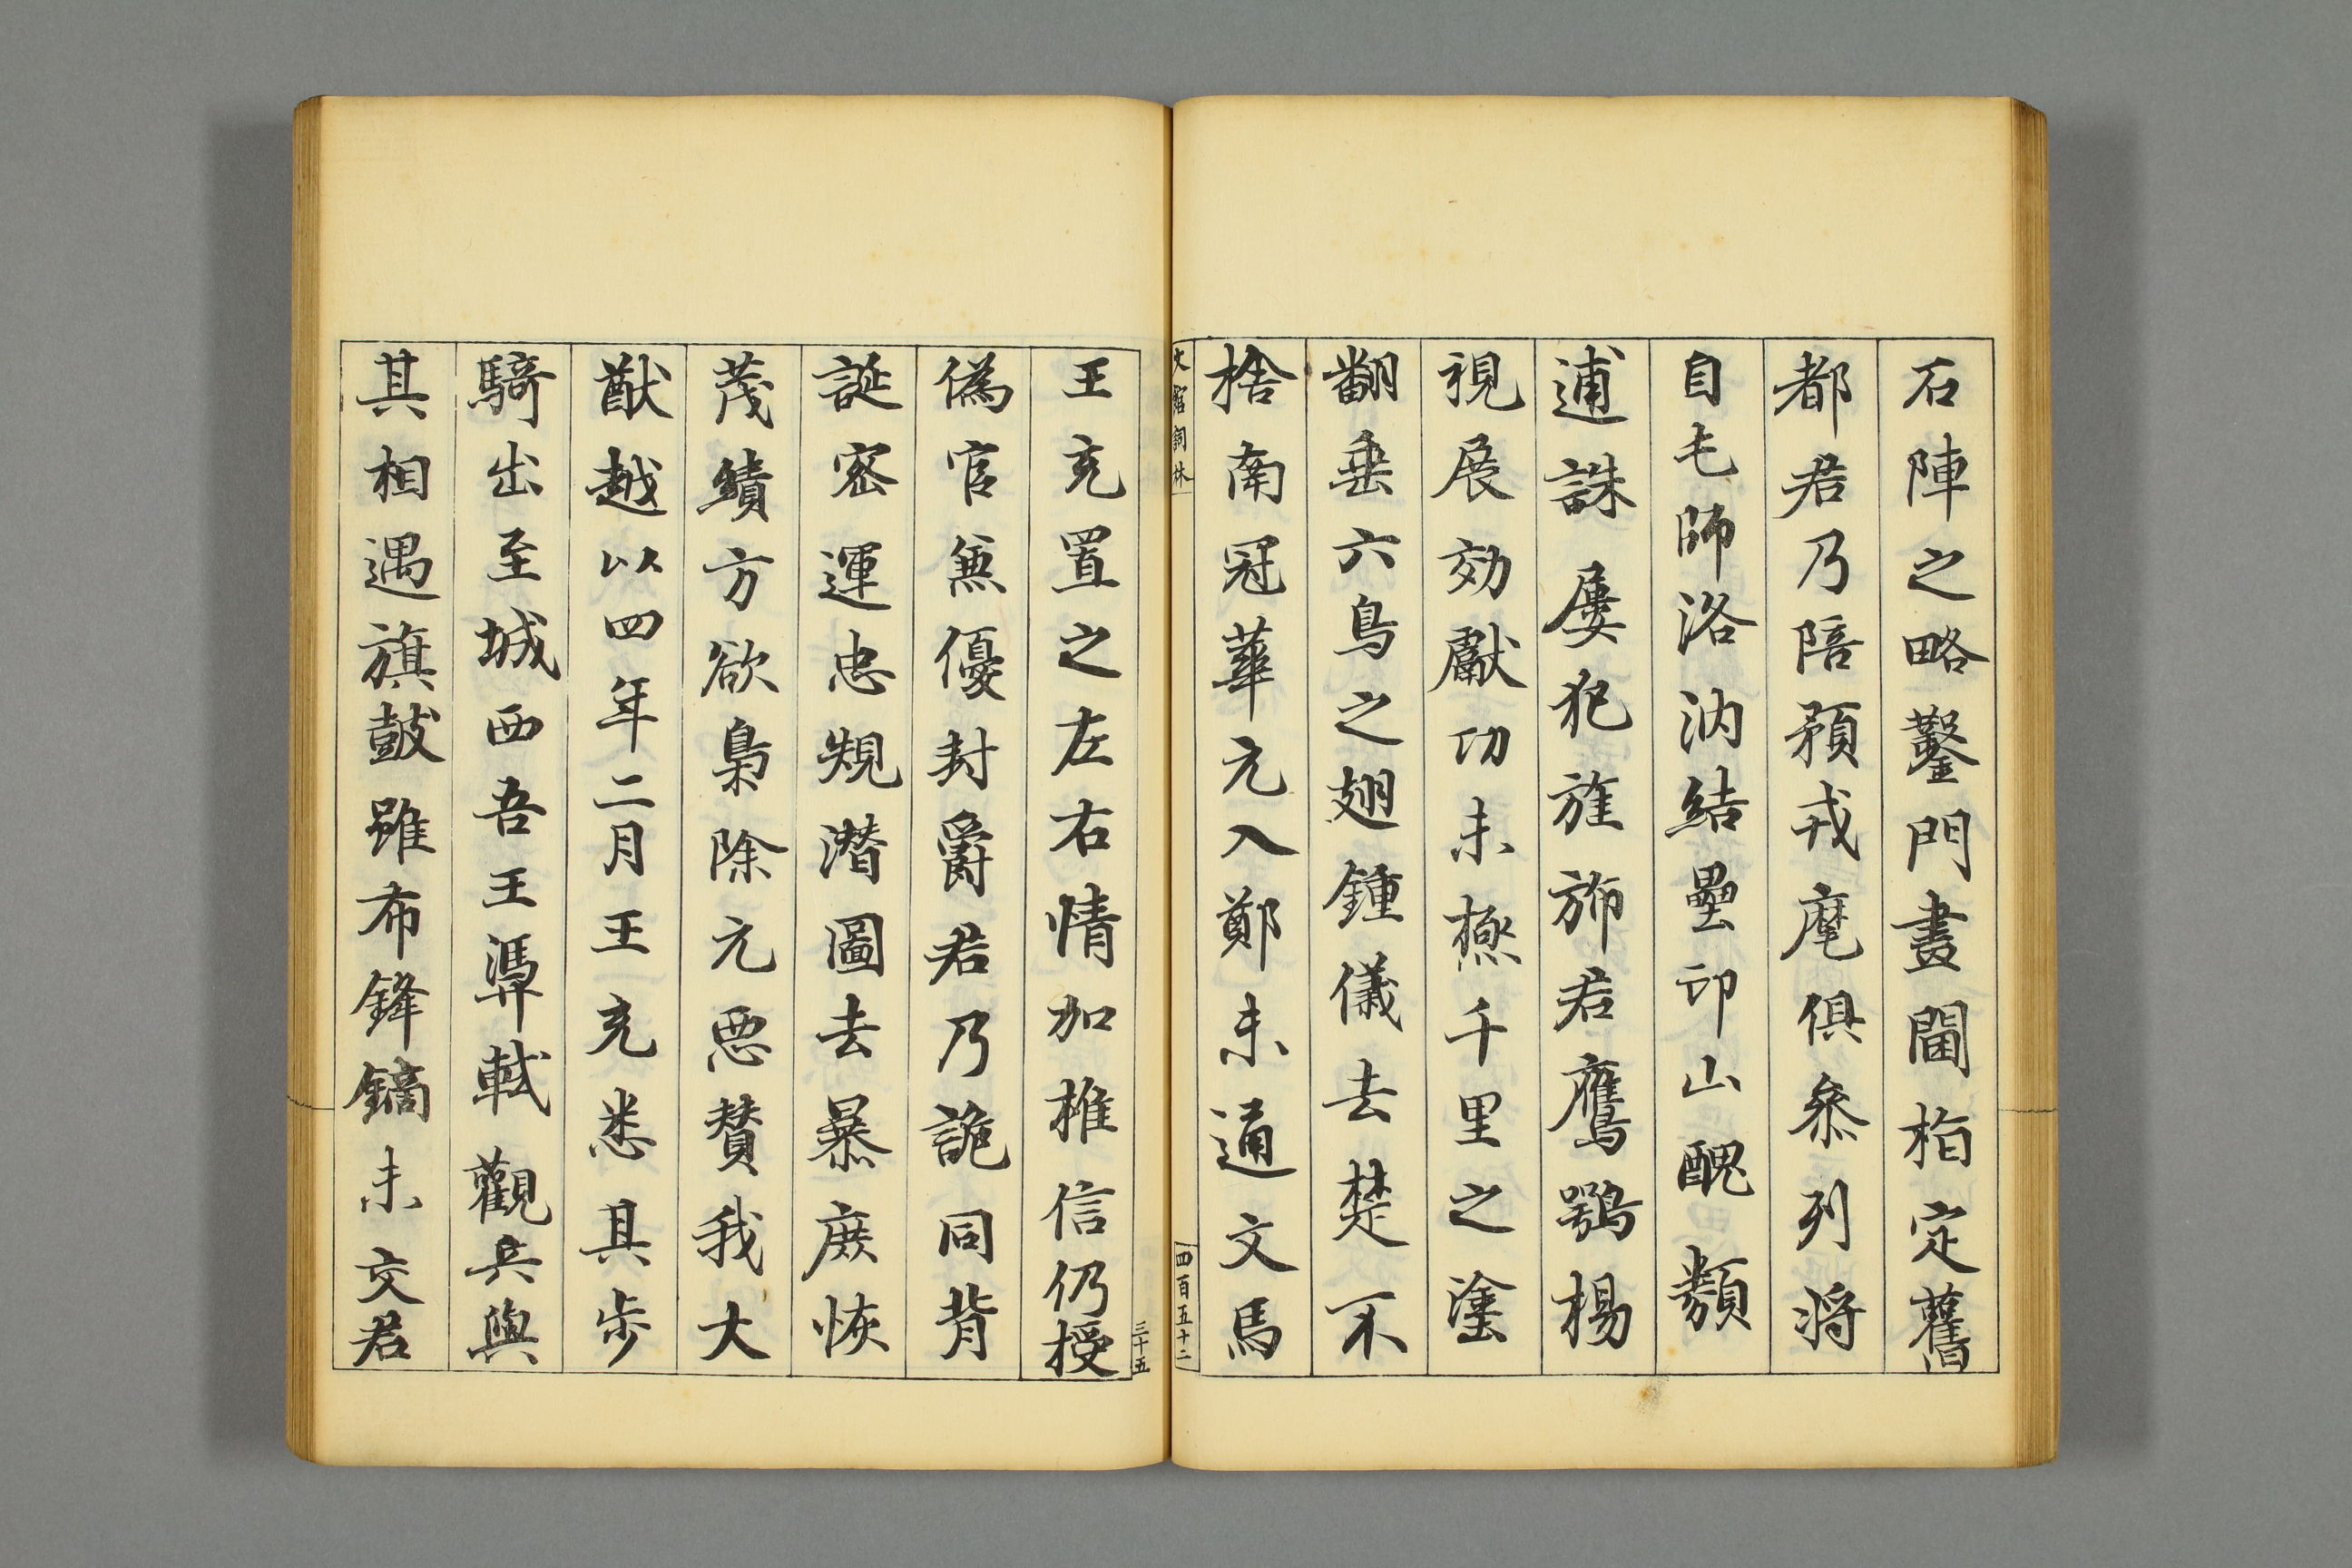 石陣之略鑿門畫閫指定舊
都君乃陪預戎麾俱叅列将
自屯師洛汭結壘邙山醜類
逋誅屢犯旌斾君鷹鶚揚
視展効獻功未極千里之塗
翻垂六鳥之翅鍾儀去楚不
捨南冠華元入鄭未通文馬
文館詞林
四百五十二
三十五
王充置之左右情加推信仍授
偽官兼優封爵君乃詭同背
誕密運忠規潛圖去暴庶恢
茂績方欲梟除元惡賛我大
猷越以四年二月王充悉其步
騎出至城西吾王馮軾觀兵與
其相遇旗鼓雖布鋒鏑未交君